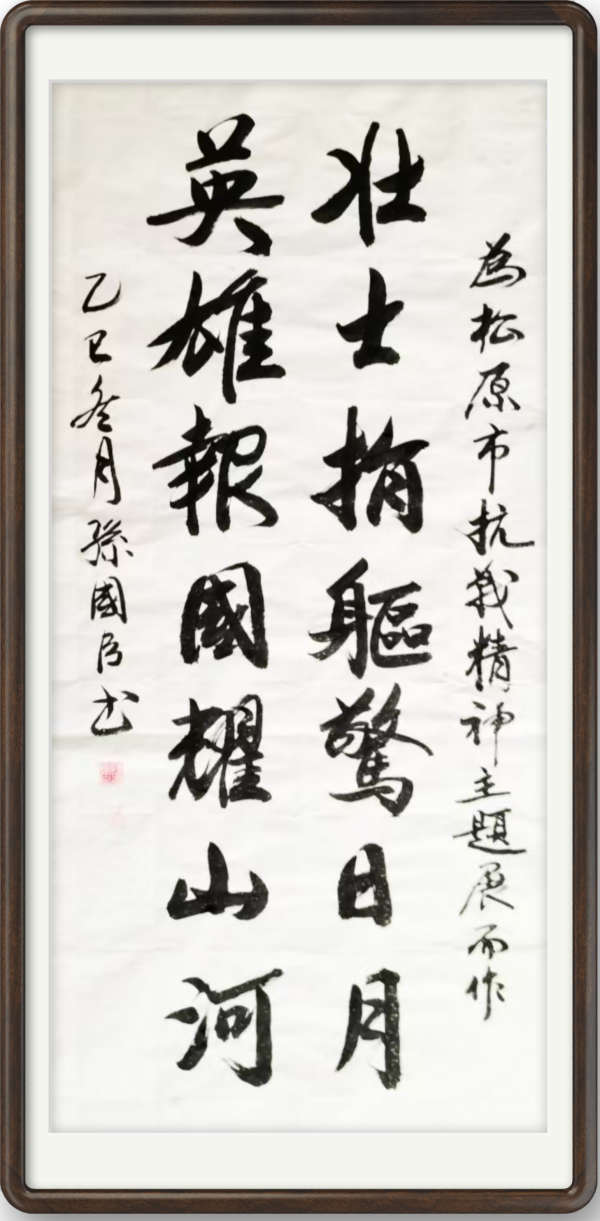 為松原市抗戰精神主題展而作
壮士捐軀驚日月
英雄報國耀山河
乙巳冬月孫國臣书